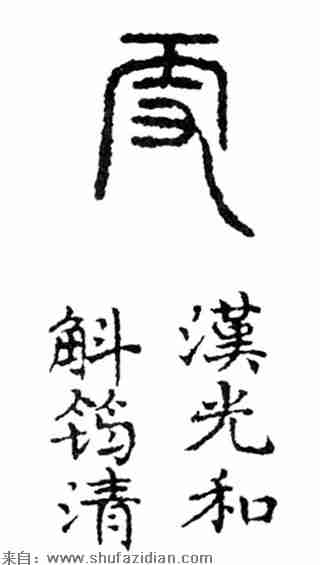 漢光和
斛筠清
来自：www.shufazidian.com